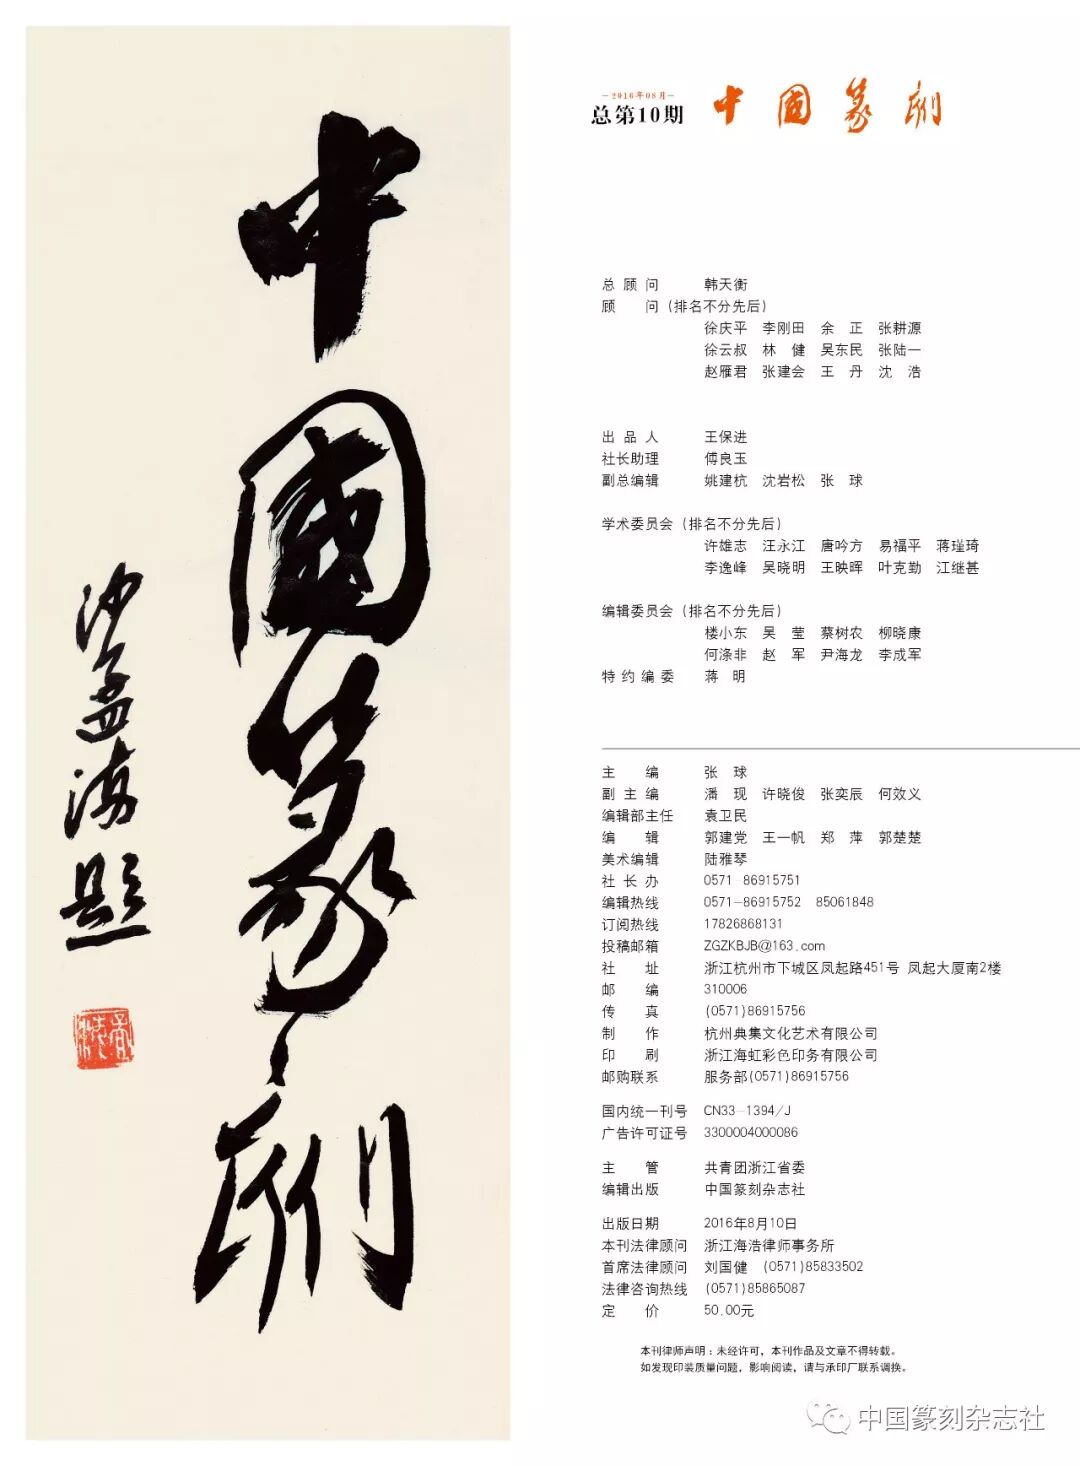 中國篆刻
沙孟海題
－2016年08月－
总第10期
中國篆刻
总顾问 韩天衡
顾问（排名不分先后）
徐庆平 李刚田 余正 张耕源
徐云叔 林健 吴东民 张陆一
赵雁君 张建会 王丹 沈浩
出品人 王保进
社长助理 傅良玉
副总编辑 姚建杭 沈岩松 张球
学术委员会（排名不分先后）
许雄志 汪永江 唐吟方 易福平 蒋瑾琦
李逸峰 吴晓明 王映晖 叶克勤 江继甚
编辑委员会（排名不分先后）
楼小东 吴莹 蔡树农 柳晓康
何涤非 赵军 尹海龙 李成军
特约编委 蒋明
主编 张球
副主编 潘现 许晓俊 张奕辰 何效义
编辑部主任 袁卫民
编辑 郭建党 王一帆 郑萍 郭楚楚
美术编辑 陆雅琴
社长办 0571-86915751
编辑热线 0571-86915752 85061848
订阅热线 17826868131
投稿邮箱 ZGZKBJB@163.com
社址 浙江杭州市下城区凤起路451号 凤起大厦南2楼
邮编 310006
传真 (0571)86915756
制作 杭州典集文化艺术有限公司
印刷 浙江海虹彩色印务有限公司
邮购联系 服务部(0571)86915756
国内统一刊号 CN33-1394/J
广告许可证号 3300004000086
主管 共青团浙江省委
编辑出版 中国篆刻杂志社
出版日期 2016年8月10日
本刊法律顾问 浙江海浩律师事务所
首席法律顾问 刘国健 (0571)85833502
法律咨询热线 (0571)85865087
定价 50.00元
本刊律师声明：未经许可，本刊作品及文章不得转载。
如发现印装质量问题，影响阅读，请与承印厂联系调换。
中国篆刻杂志社